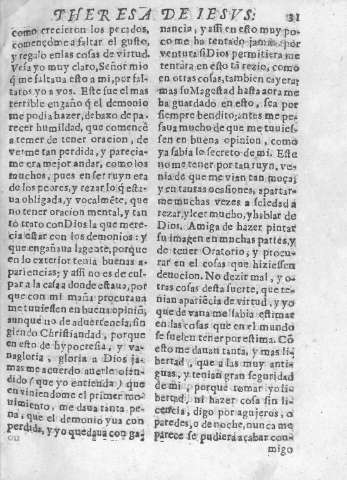 THERESA DE IESVS: 31
como crecieron los pecados,
començòme a faltar el gusto,
y regalo en las cosas de virtud.
Veía yo muy claro, Señor mio
q̃ me faltaua esto a mi, por fal-
taros yo a vos. Este fue el mas
terrible engaño q̃ el demonio
me podia hazer, debaxo de pa-
recer humildad, que comencè
a temer de tener oracion, de
verme tan perdida, y parecia-
me era mejor andar, como los
muchos, pues en ser ruyn era
de los peores, y rezar lo q̃ esta-
ua obligada, y vocalmẽte, que
no tener oracion mental, y tan
to trato con Dios la que mere-
cia estar con los demonios: y
que engañaua la gente, porque
en lo exterior tenia buenas a-
pariencias; y assi no es de cul-
par a la casa a donde estaua, por
que con mi maña procuraua
me tuuiessen en buena opiniõ,
aunque no de aduertencia, fin
giendo Christiandad, porque
en esto de hypocresia, y va-
nagloria, gloria a Dios ja-
mas me acuerdo auerle ofen-
dido (que yo entienda) que
en viniendome el primer mo-
uimiento, me daua tanta pe-
na, que el demonio yua con
perdida, y yo quedaua con ga-
nancia, y assi en esto muy po-
co me ha tentado jamas, por
ventura si Dios permitiera me
tentara en esto tã rezio, como
en otras cosas, tambien cayera;
mas su Magestad hasta aora me
ha guardado en esto, sea por
siempre bendito; antes me pe-
saua mucho de que me tuuies-
sen en buena opinion, como
ya sabia lo secreto de mi. Este
no me tener por tan ruyn, ve-
nia de que me vian tan moça; y
en tantas ocasiones, apartar-
me muchas vezes a soledad a
rezar, y leer mucho, y hablar de
Dios. Amiga de hazer pintar
su imagen en muchas partes, y
de tener Oratorio; y procu-
rar en el cosas que hiziessen
deuocion. No dezir mal, y o-
tras cosas desta suerte, que te-
nian apariẽcia de virtud, y yo
que de vana me sabia estimar
en las cosas que en el mundo
se suelen tener por estima. Cõ
esto me dauan tanta, y mas li-
bertad, que a las muy anti-
guas, y tenian gran seguridad
de mi, porque tomar yo li-
bertad, ni hazer cosa sin li-
cencia, digo por agujeros, o
paredes, o de noche, nunca me
parece se pudiera acabar con-
migo